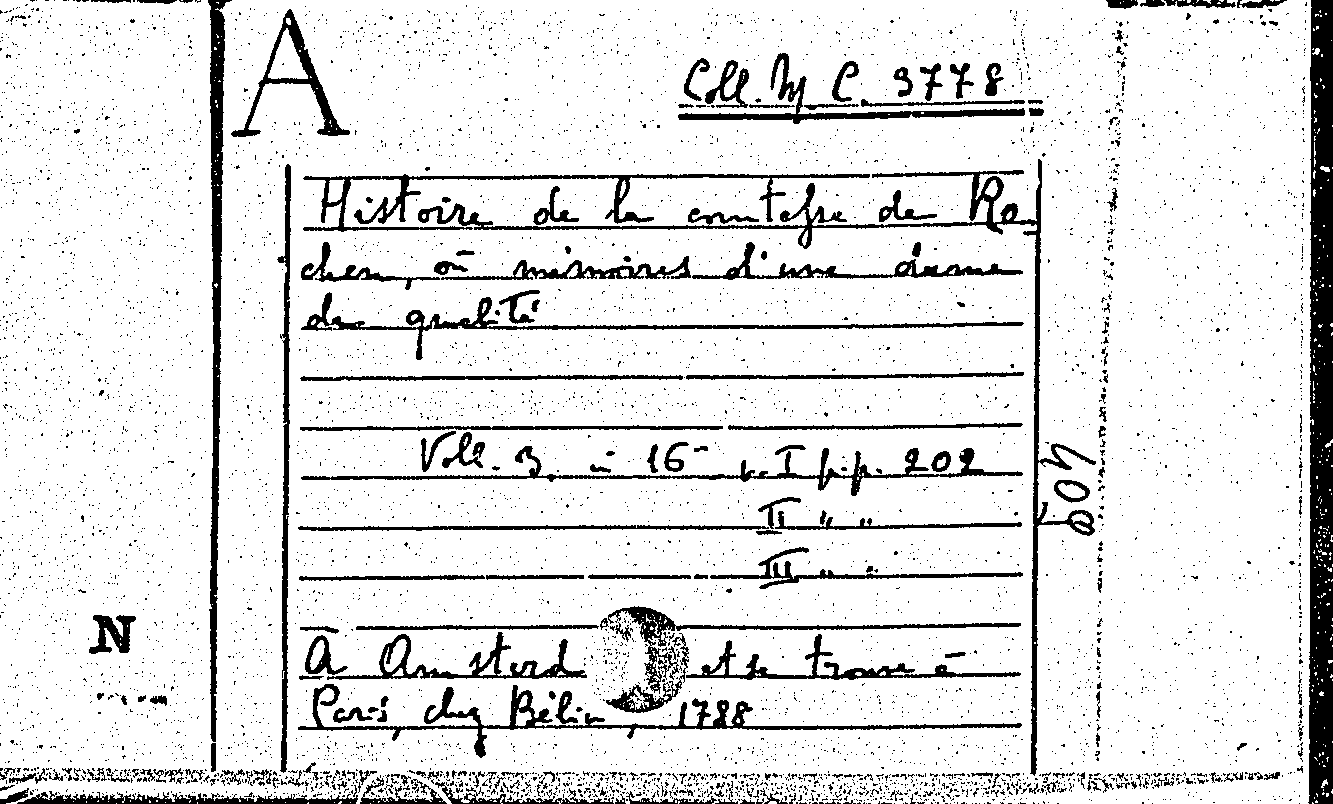 A
Coll. M. C. 3778
Histoire de la comtesse de Ro-
chen, où mémoires d'une dame
de qualité
Voll. 3. in 16- v. I p.p. 202
II " "
III " "
A Amsterd et se trouve à
Paris, chez Bélin, 1788
N